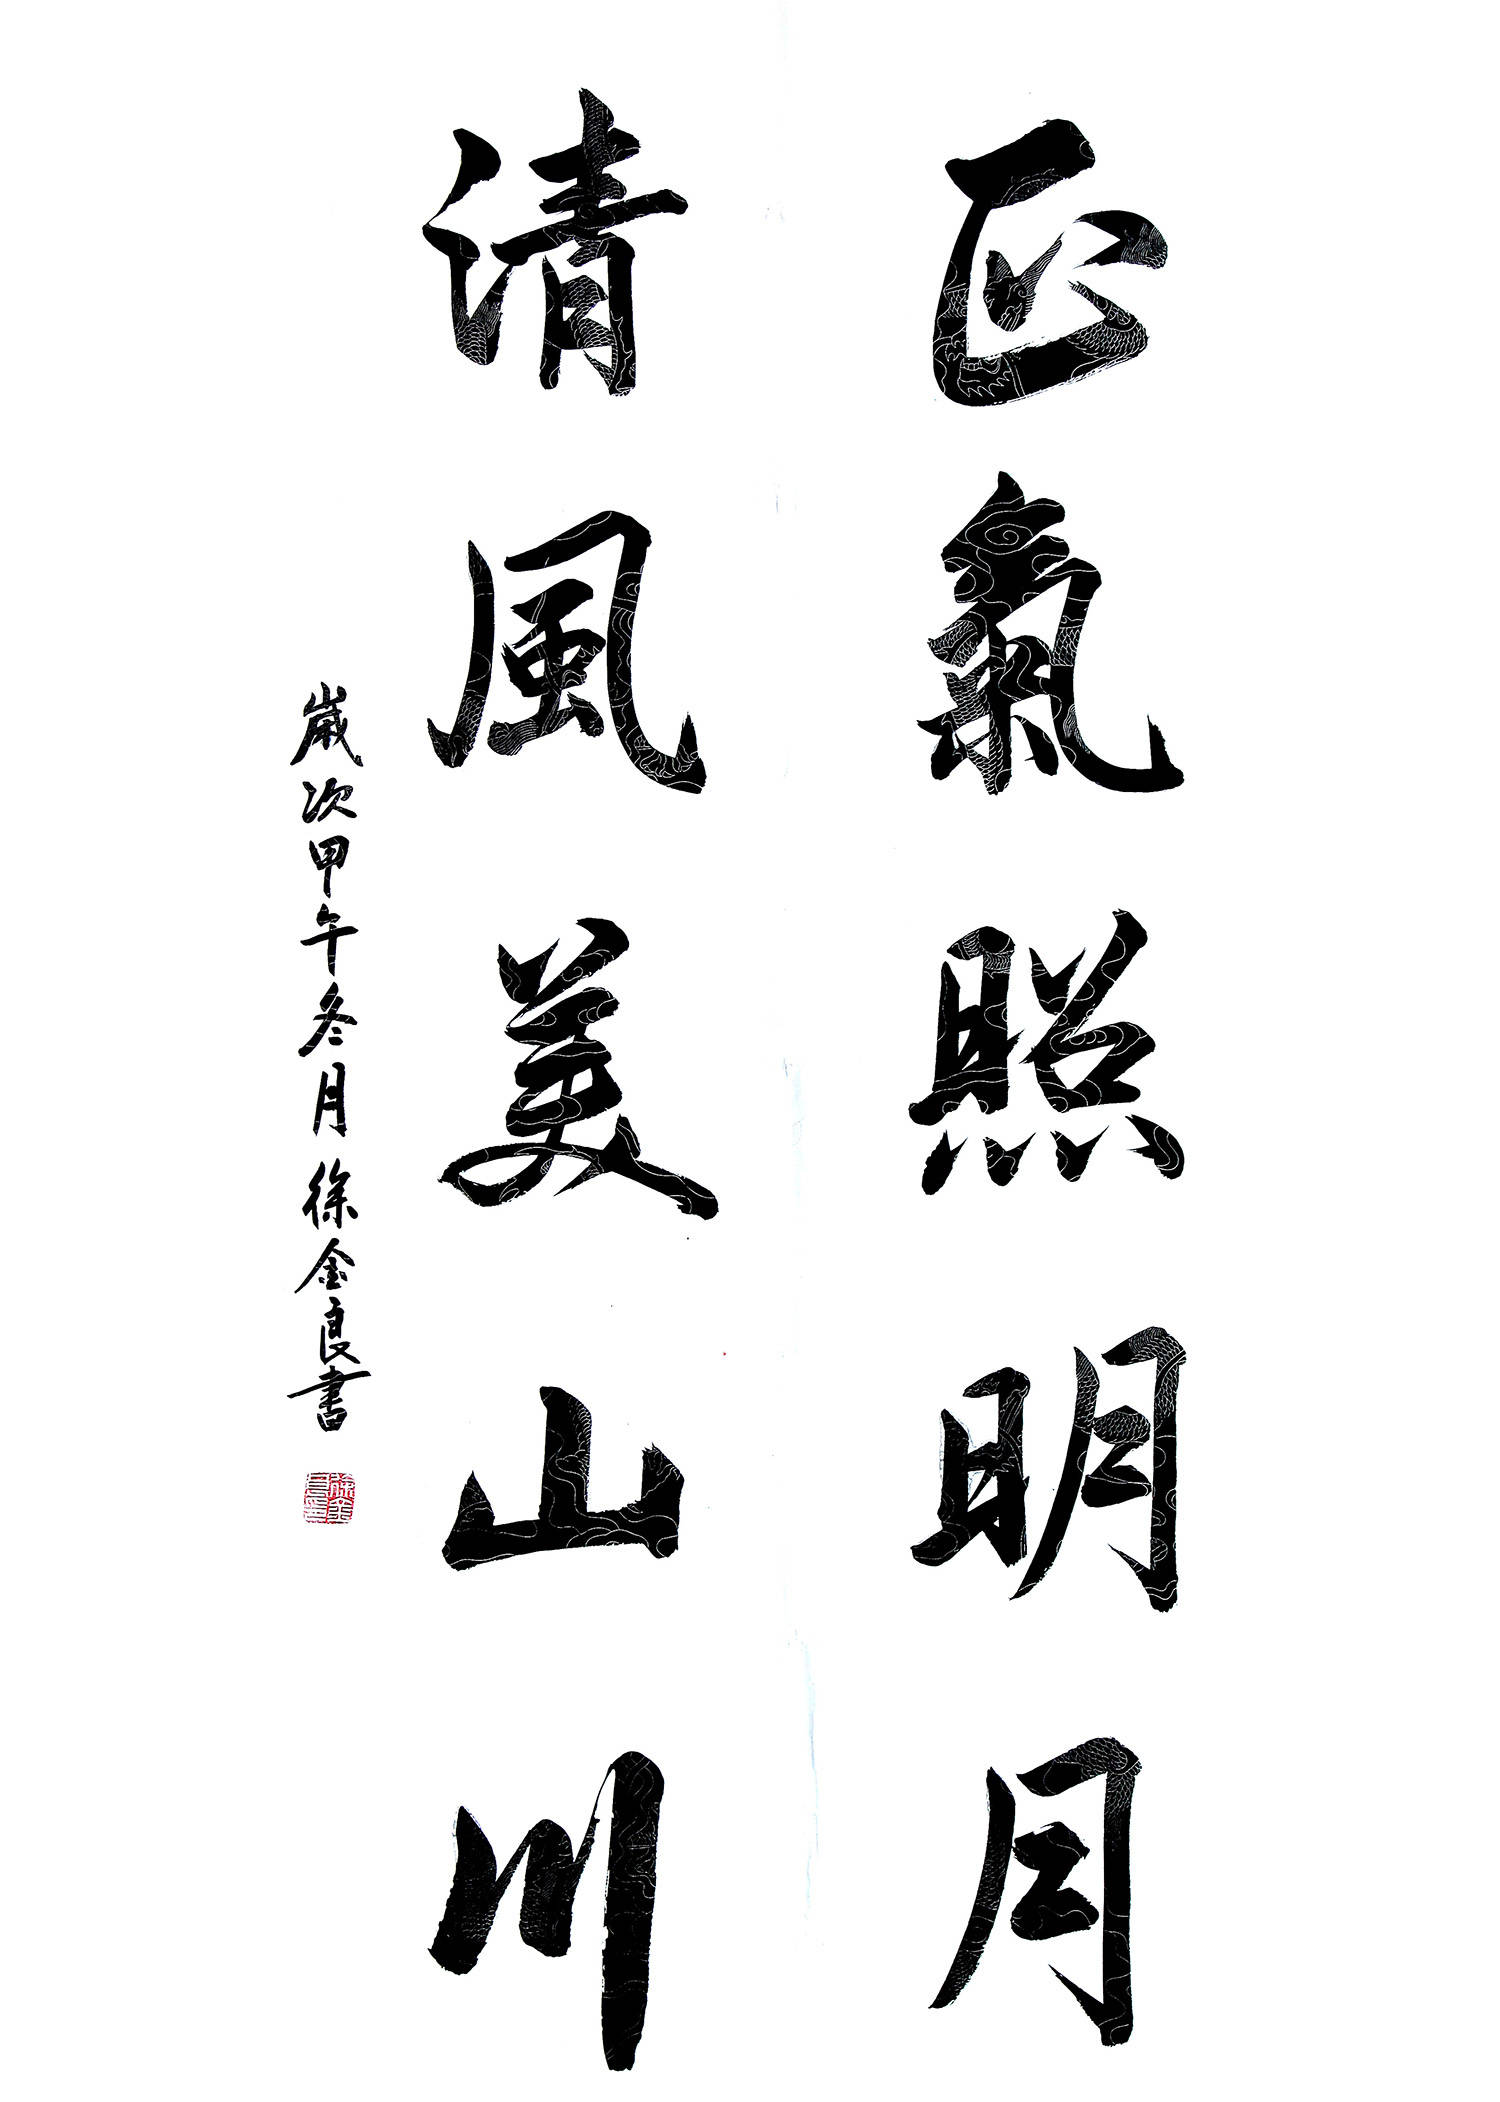 正氣照明月
清風美山川
歲次甲午冬月徐金良書